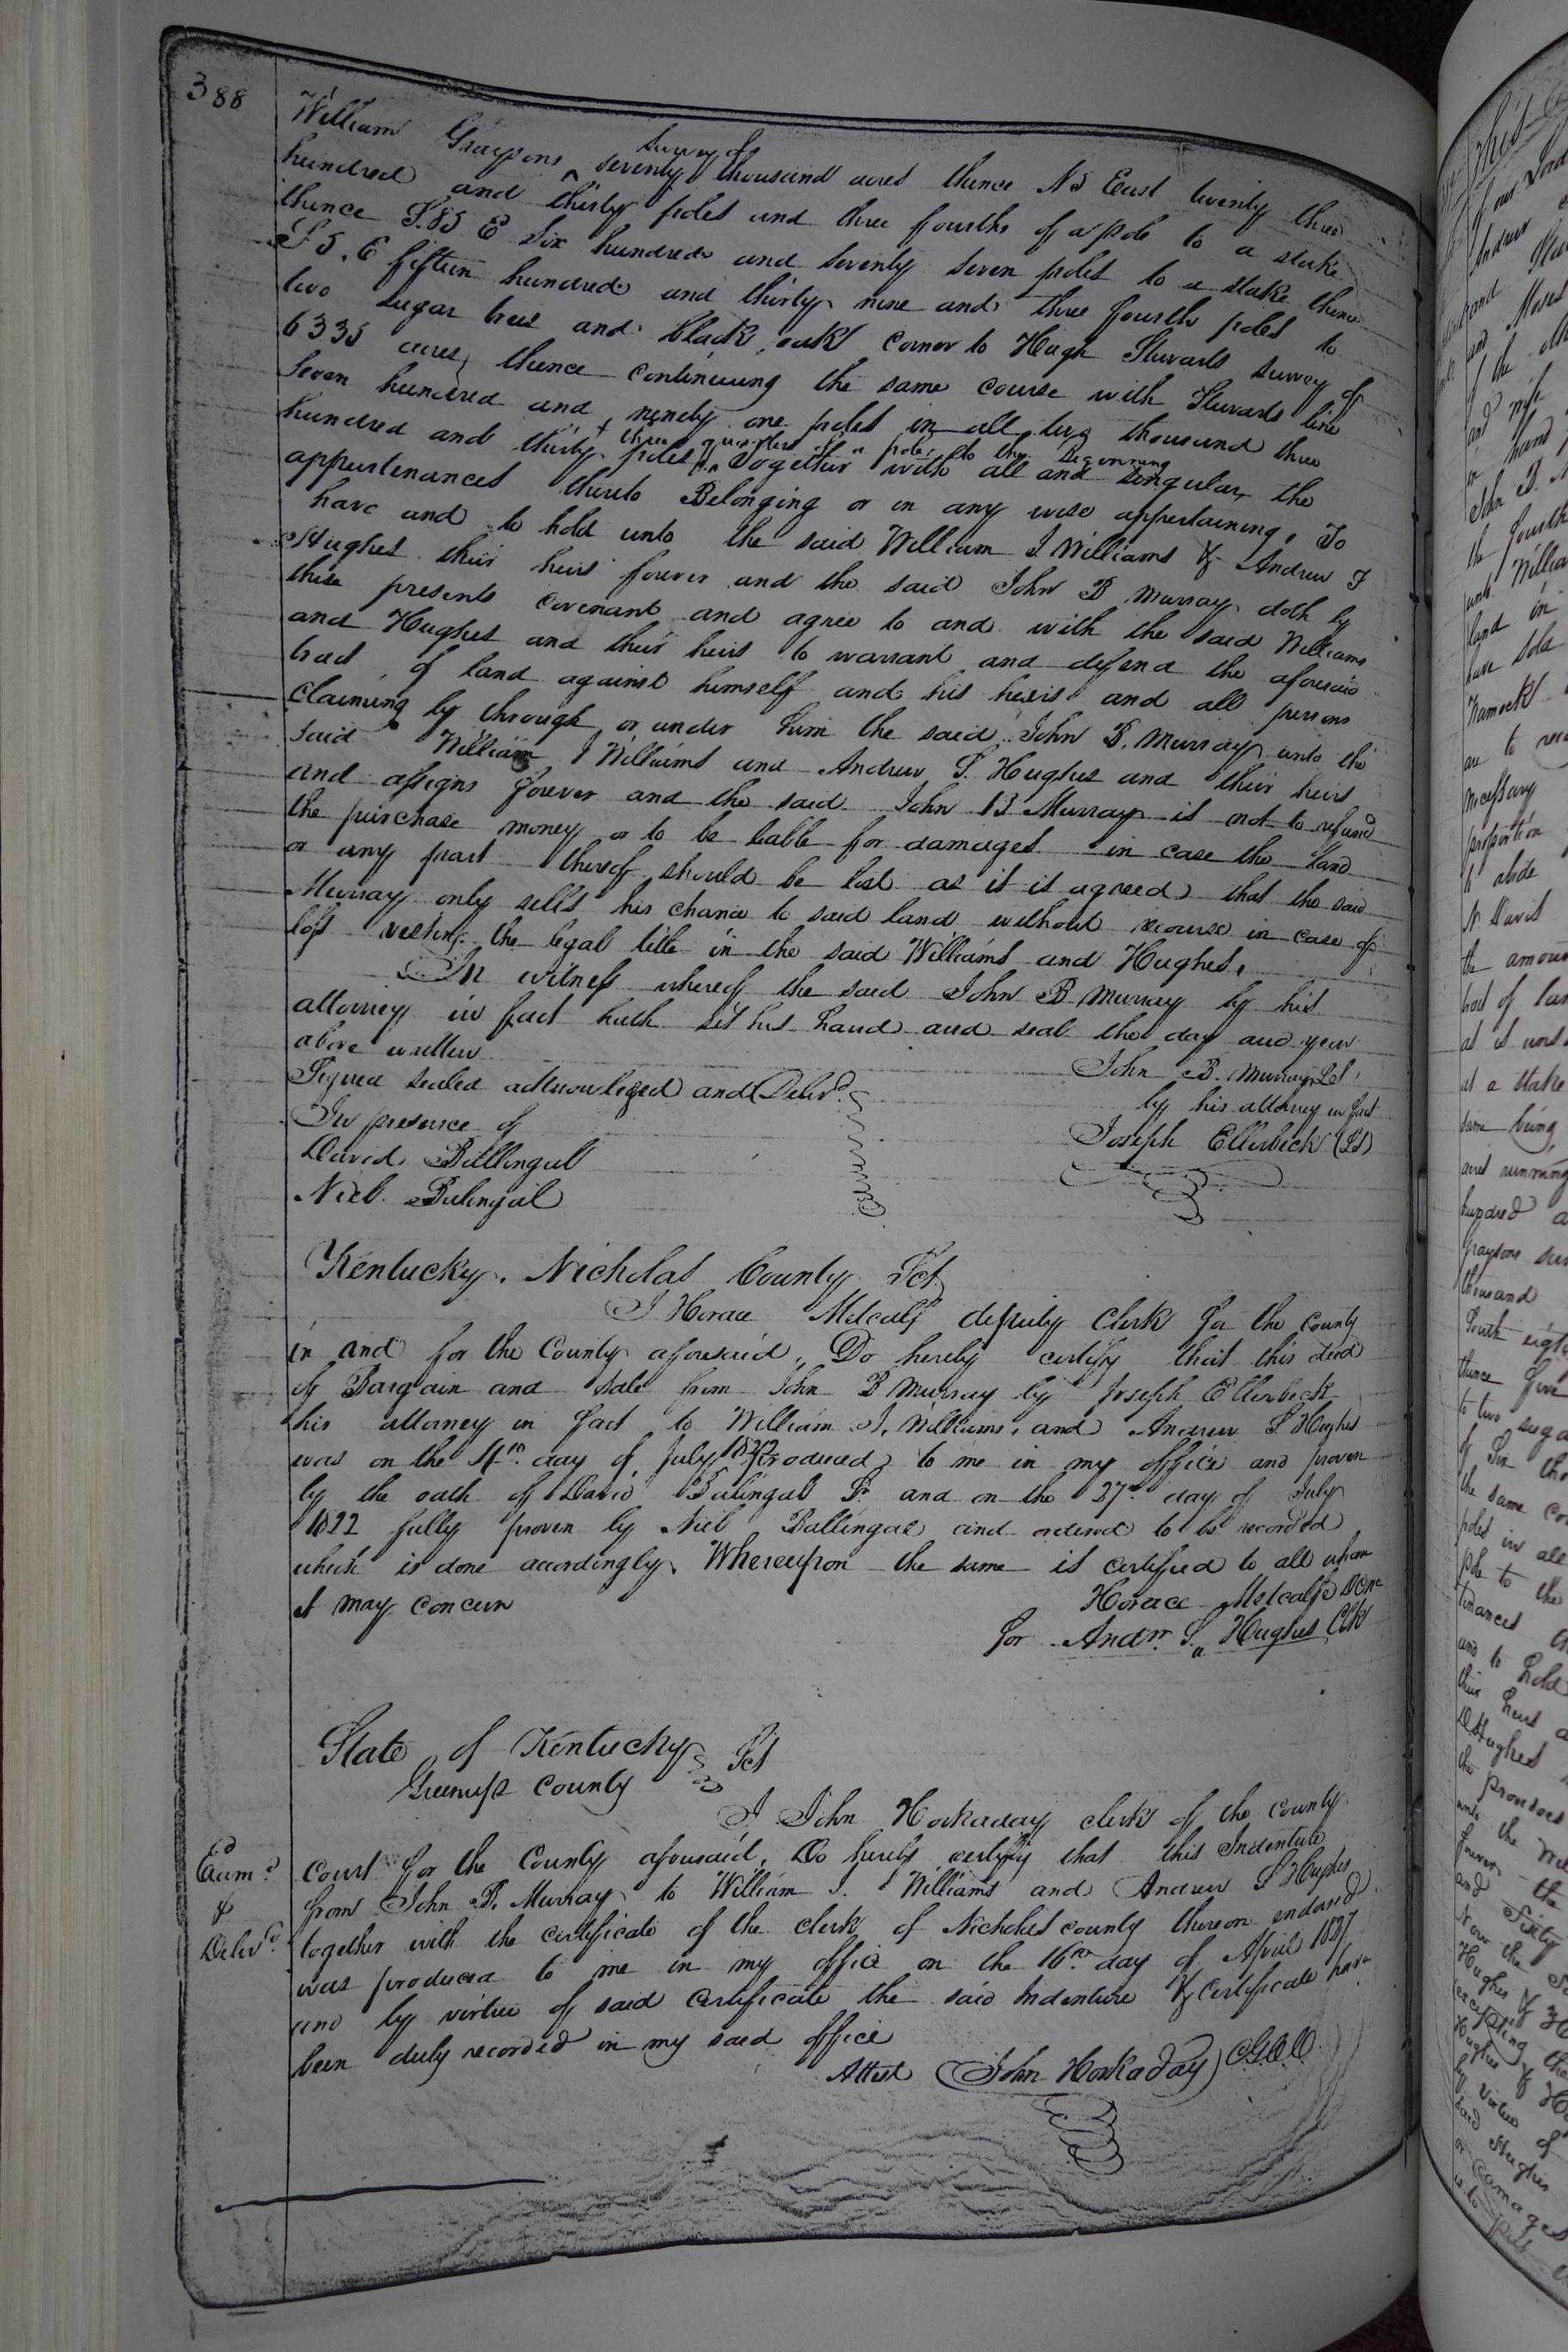 388
William Graysons survey of seventy thousand acres thence N5 East twenty three
hundred and thirty poles and three fourths of a pole to a stake
thence S.85 E Six hundred and seventy seven poles to a stake thence
S 5. E fifteen hundred and thirty nine and three fourths poles to
two sugar trees and black oak corner to Hugh Stuvards survey of
6335 acres, thence continuing the same course with Stuvards line
Seven hundred and ninety one poles in all two thousand three
hundred and thirty poles three quarters of a pole, to the Beginning Together with all and singular, the
appurtenances thereto Belonging or in any wise appertaining, To
have and to hold unto the said William I Williams & Andrew S
Hughes their heirs forever and the said John B Murray doth by
these presents covenant and agree to and with the said Williams
and Hughes and their heirs to warrant and defend the aforesaid
tract of land against himself and his heirs and all persons
claiming by through or under him the said John B. Murray unto the
said William I Williams and Andrew S. Hughes and their heirs
and assigns forever and the said John B Murray is not to refund
the purchase money or to be liable for damages in case the land
or any part thereof should be lost as it is agreed that the said
Murray only sells his chance to said land without recourse in case of
loss vesting the legal title in the said Williams and Hughes.
In witness whereof the said John B Murray by his
attorney in fact hath set his hand and seal the day and year
above written
Signed sealed acknowledged and Delivd
In presence of
David Ballengal
Niel Balengal
John B. Murray LS
by his attorney in fact
Joseph Ellerbeck (LS)
Kentucky. Nicholas County Sct
I Horace Metcalf deputy Clerk for the county
in and for the County aforesaid, Do hereby certify that this deed
of Bargain and Sale from John B Murray by Joseph Ellerbeck
his attorney in fact to William I. Williams, and Andrew S Hughes
was on the 4th day of July 1822 produced to me in my office and proven
by the oath of David Balingal Sr and on the 27th day of July
1822 fully proven by Niel Ballingal and ordered to be recorded
which is done accordingly. Whereupon the same is certified to all whom
it may concern
Horace Metcalfe DCNC
for Andw S. Hughes Clk
State of Kentucky Sct
Greenup County
I John Hockaday clerk of the county
court for the County aforesaid, Do hereby certify that this Indenture
from John B. Murray to William I. Williams and Andrew S Hughes
together with the certificate of the clerk of Nicholas county thereon endorsed
was produced to me in my office on the 16th day of April 1827
and by virtue of said certificate the said Indenture & certificate have
been duly recorded in my said office
Attest John Hockaday CGCC
Exam.d
&
Delivd
This
of our Lord
Andrew
and Moses
of the
and
in hand
John B. M
the fourth
unto Willia
land in
have sold
are to
necessary
proportion
to abide
N Davis
the amoun
tract of lan
as it
at a stake
same being
and running
hundred a
Graysons sur
thousand
South eight
thence five
to two suga
of Six tho
the same co
poles in all
pole to the
tenances
and to hold
their heirs a
Hughes
the
unto the
forever the
and Sixty
Now the
Hughes & H
excepting the
Hughes & H
by virtue of
said Hughes
or damages